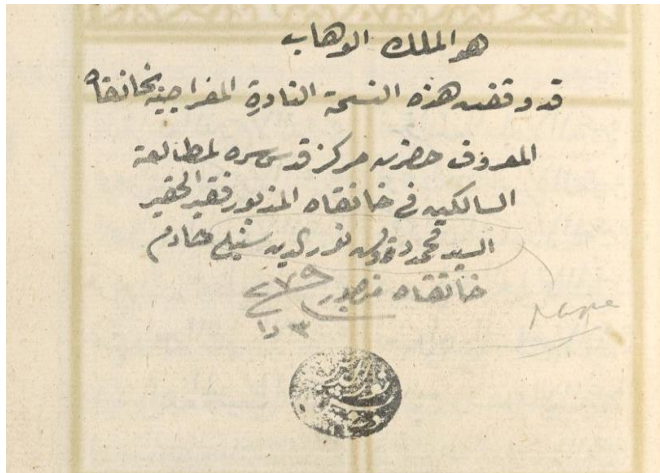 هو الملك الوهاب
قد وقفت هذه النسخة النادرة المعراجية بخانقاه
المعروف حضرت مركز قدس سره لمطالعة
السالكين في خانقاه المذبور فقير الحقير
السيد محمد نور الدين سنبلي خادم
خانقاه مزبور ٢٧٩